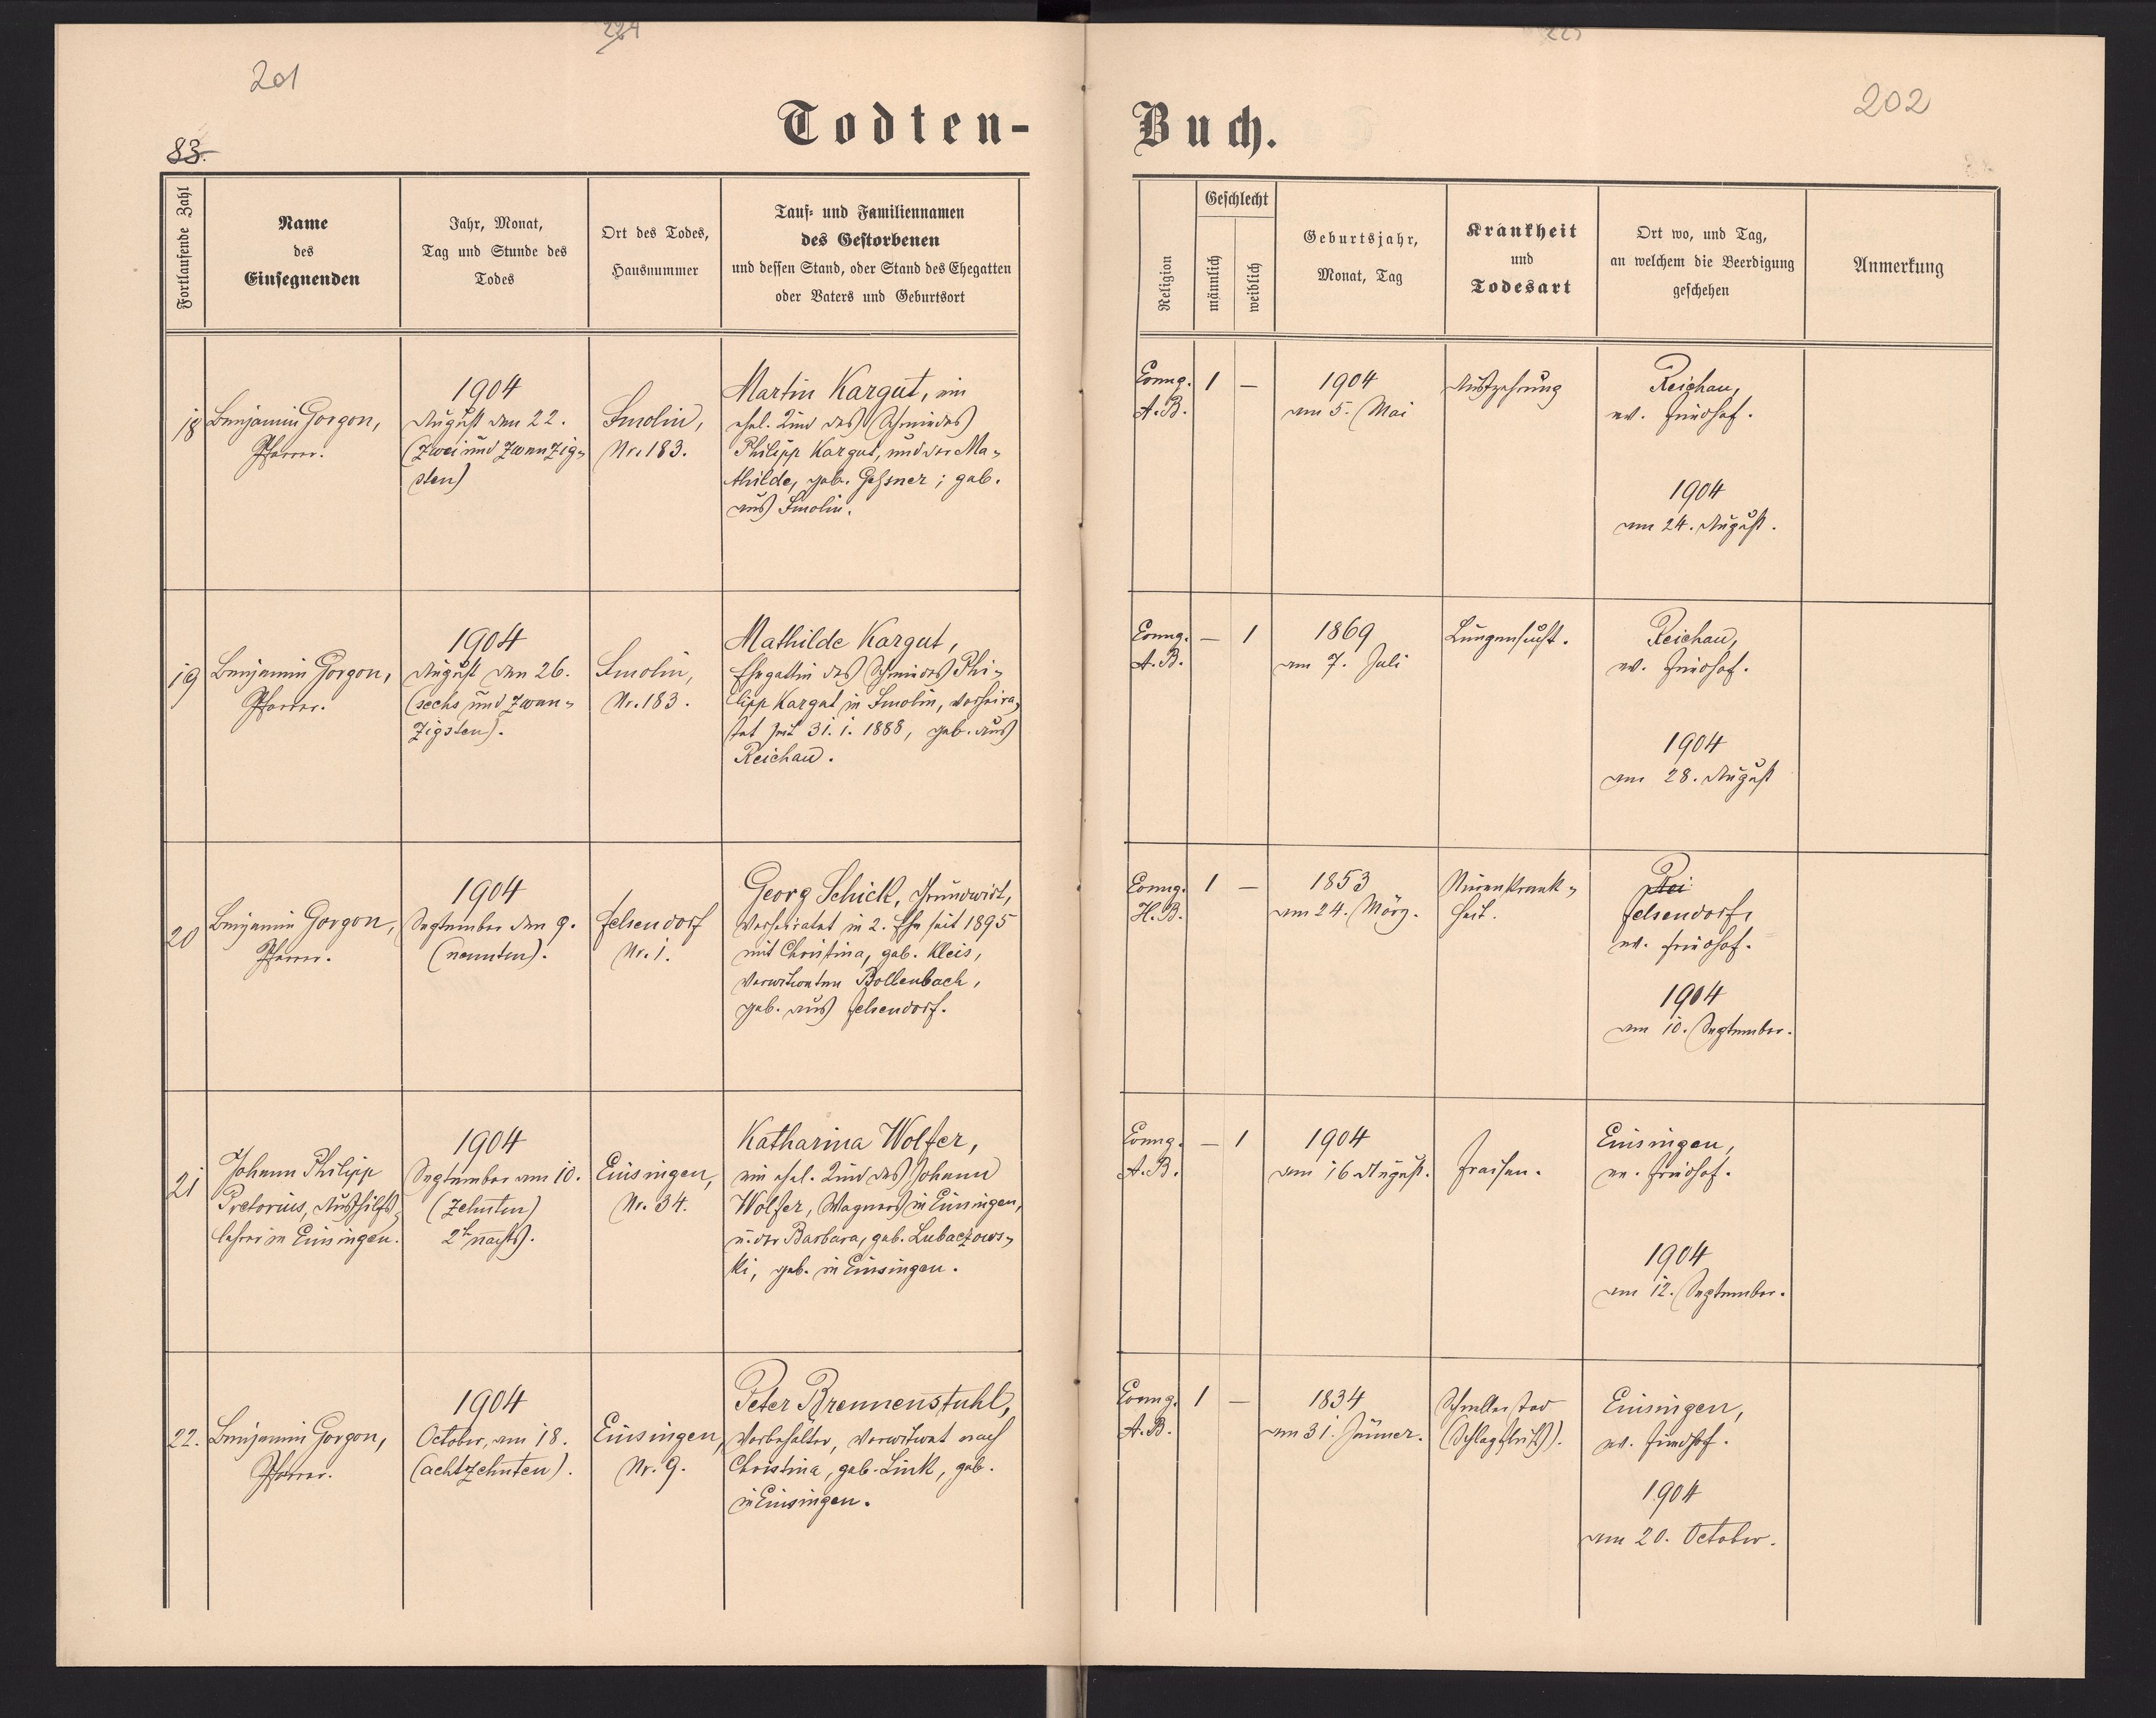 201
224
83.
Todten-
Fortlaufende Zahl
Name
des
Einsegnenden
Jahr, Monat,
Tag und Stunde des
Todes
Ort des Todes,
Hausnummer
Tauf- und Familiennamen
des Gestorbenen
und dessen Stand, oder Stand des Ehegatten
oder Vaters und Geburtsort
18
Benjamin Gorgon,
Pfarrer.
1904
August den 22.
(zwei und zwanzig-
sten)
Smolin,
Nr. 183.
Martin Kargut, ein
ehel. Kind des Schmiedes
Philipp Kargut, und der Ma-
thilde, geb. Gessner; geb.
aus Smolin.
19
Benjamin Gorgon,
Pfarrer.
1904
August den 26.
(sechs und zwan-
zigsten).
Smolin,
Nr. 183.
Mathilde Kargut,
Ehegattin des Schmiedes Phi-
lipp Kargut in Smolin, verheira-
tet seit 31. 1. 1888, geb. aus
Reichau.
20
Benjamin Gorgon,
Pfarrer.
1904
September den 9.
(neunten).
Felsendorf
Nr. 1.
Georg Schick, Grundwirt,
verheiratet in 2. Ehe seit 1895
mit Christina, geb. Kleis,
verwitweten Bollenbach,
geb. aus Felsendorf.
21
Johann Philipp
Pretorius, Aushilfs-
lehrer in Einsingen.
1904
September am 10.
(zehnten)
2h nachts.
Einsingen,
Nr. 34.
Katharina Wolfer,
ein ehel. Kind des Johann
Wolfer, Wagners in Einsingen,
u. der Barbara, geb. Lubaczows-
ki, geb. in Einsingen.
22.
Benjamin Gorgon,
Pfarrer.
1904
October, am 18.
(achtzehnten).
Einsingen,
Nr. 9.
Peter Brennenstuhl,
Vorbehalter, verwitwet nach
Christina, geb. Link, geb.
in Einsingen.
225
202
Buch.
Religion
Geschlecht
männlich
weiblich
Geburtsjahr,
Monat, Tag
Krankheit
und
Todesart
Ort wo, und Tag,
an welchem die Beerdigung
geschehen
Anmerkung
Evang.
A. B.
1
—
1904
am 5. Mai
Auszehrung
Reichau,
ev. Friedhof.
1904
am 24. August.
Evang.
A. B.
—
1
1869
am 7. Juli
Lungensucht.
Reichau,
ev. Friedhof.
1904
am 28. August
Evang.
H. B.
1
—
1853
am 24. März.
Nierenkrank-
heit.
Rei
Felsendorf,
ev. Friedhof.
1904
am 10. September.
Evang.
A. B.
—
1
1904
am 16 August.
Fraisen.
Einsingen,
ev. Friedhof.
1904
am 12. September.
Evang.
A. B.
1
—
1834
am 31. Jänner.
Schneller Tod
(Schlagfluß).
Einsingen,
ev. Friedhof.
1904
am 20. October.